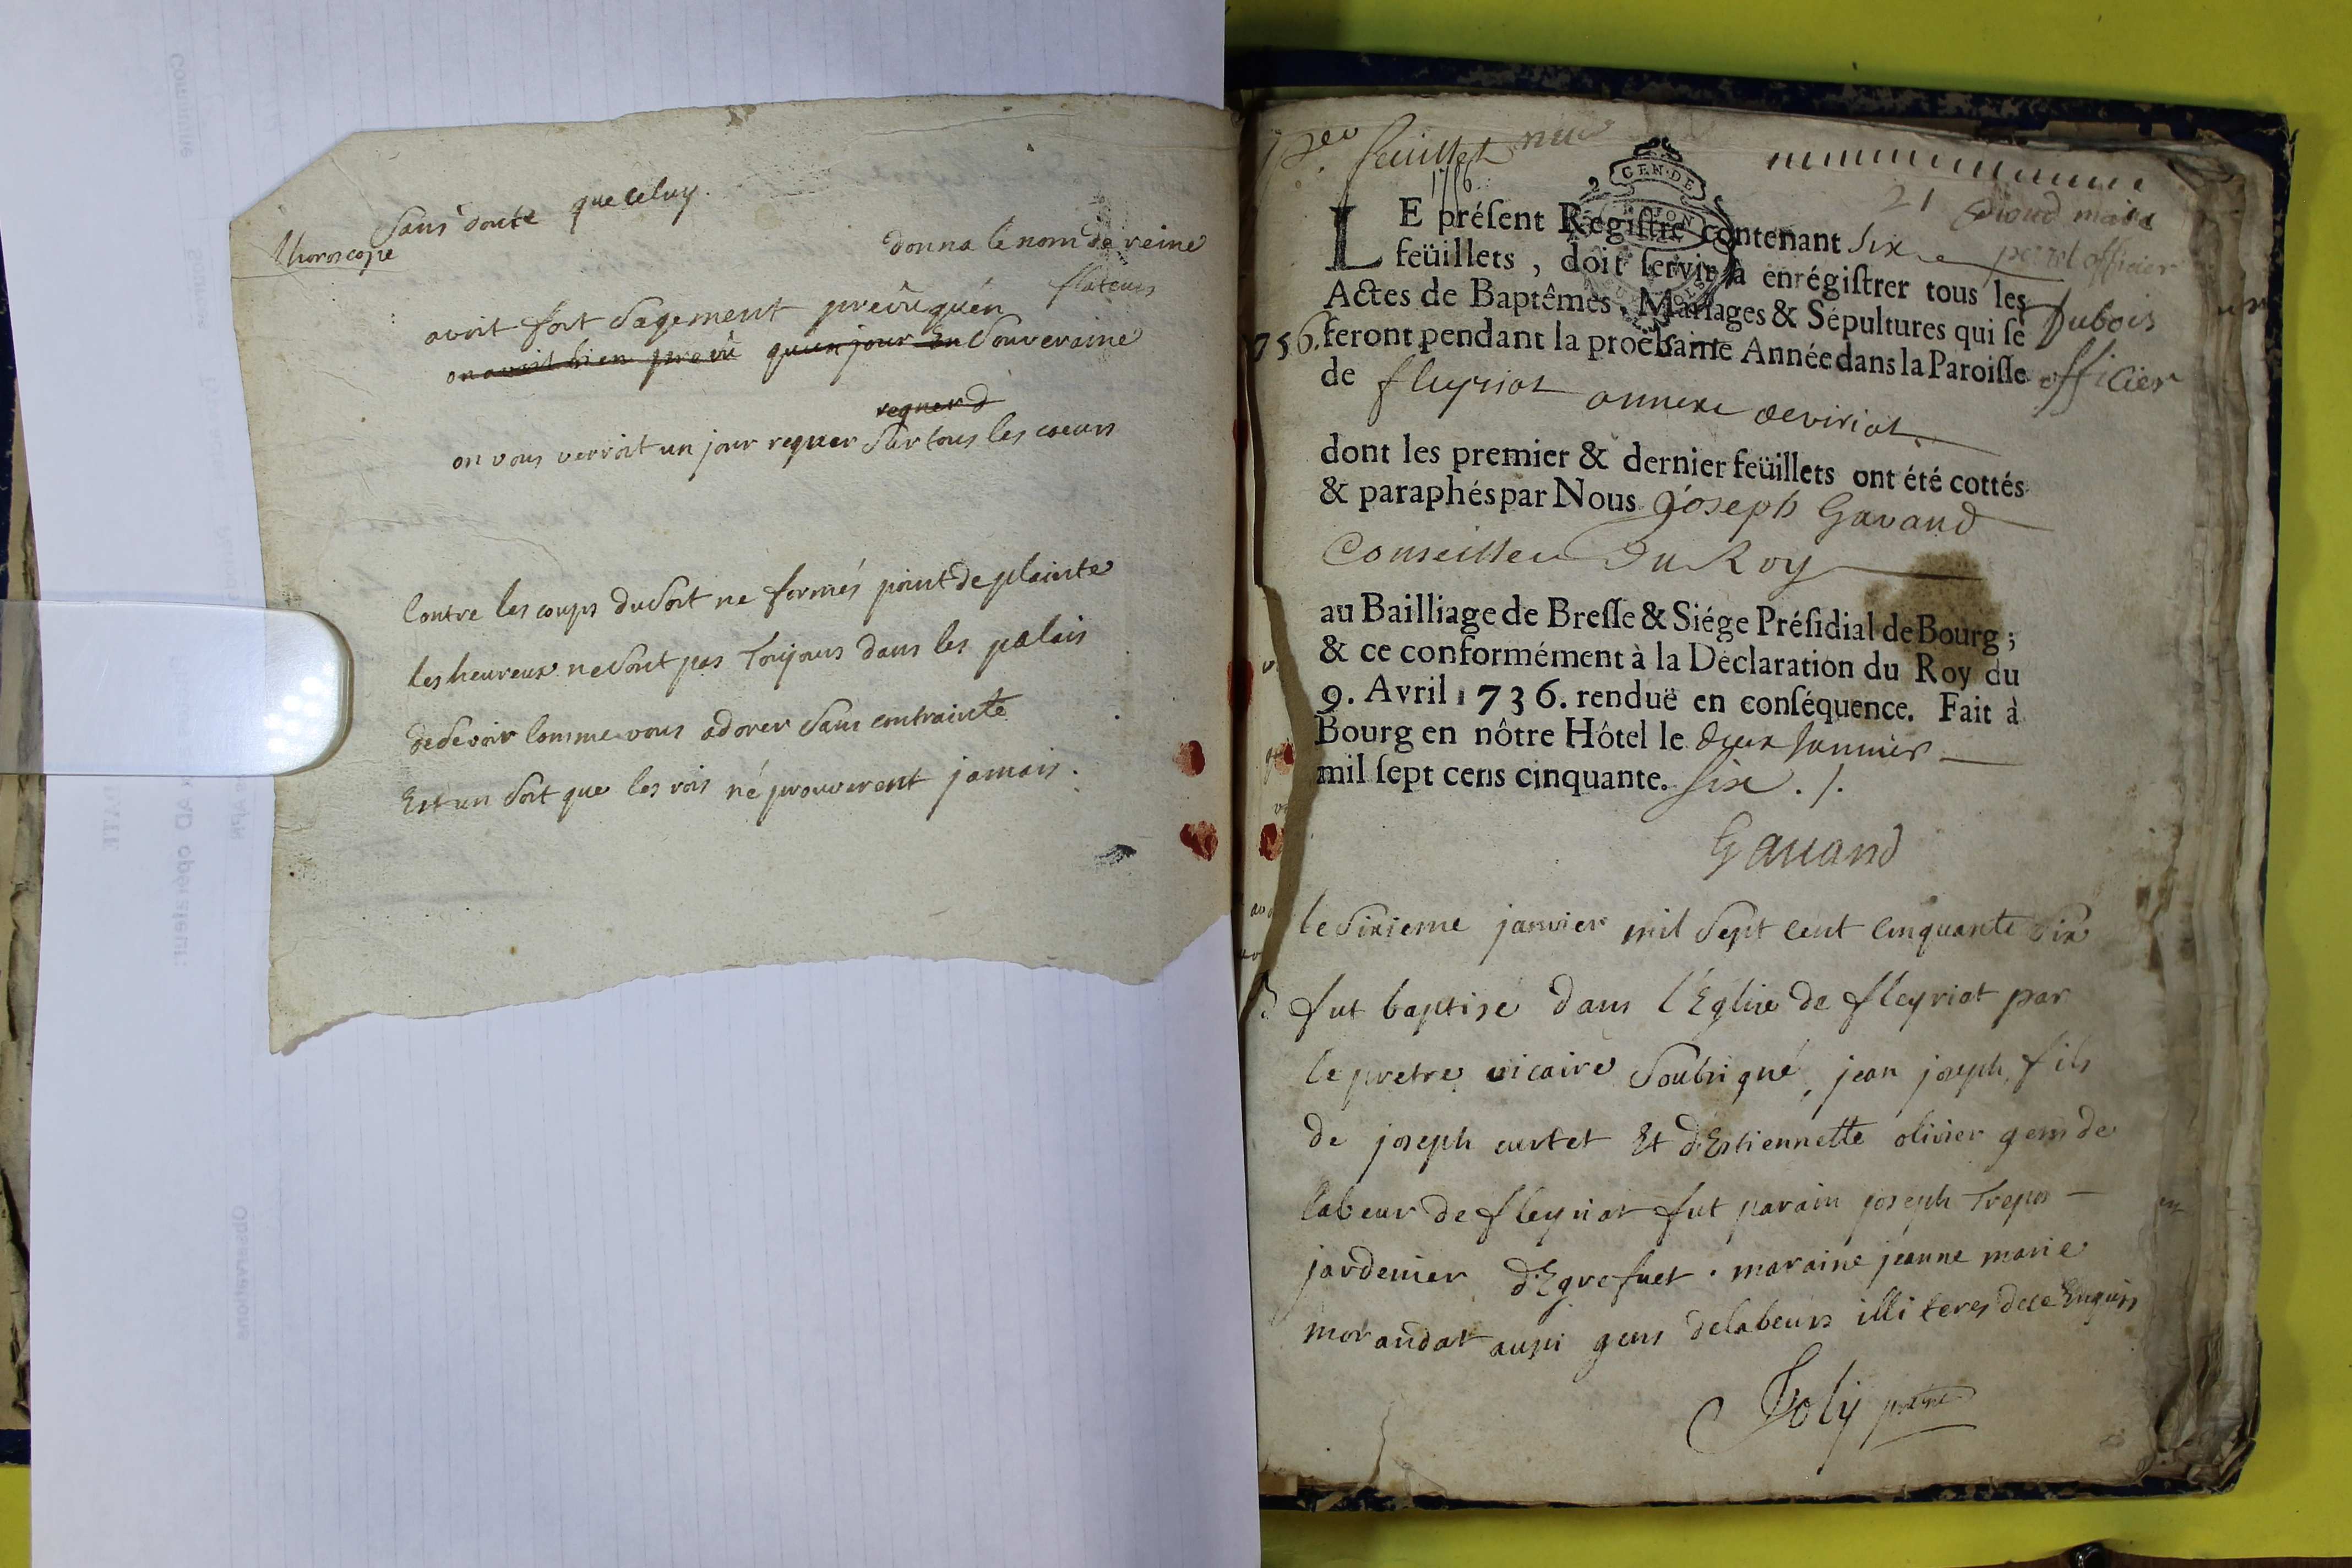 Sans doute que celuy.
l'horoscope
donna le nom de reine
flateurs
avoit fort sagement prevû quén
on avoit bien prevû qu'un jour En Souveraine
regner d
on vous verroit un jour regner Sur tous les coeurs
Contre les coups du Sort ne formés point de plainte
les heureux ne Sont pas Toujours dans les palais
de se voir comme vous adorer Sans contrainte
Est un Sort que les rois n'éprouverent jamais.
per feuillet
GEN·DE
21
LE préſent Regiſtre contenant Six
feüillets, doit ſervir à enrégiſtrer tous les
Actes de Baptêmes, Mariages & Sépultures qui ſe
756. feront pendant la prochaine Année dans la Paroiſſe
de fleyriat annexe de viriat.
Dubois
officier
dont les premier & dernier feüillets ont été cottés
& paraphés par Nous Joseph Gavand
Conseiller Du Roy
au Bailliage de Breſſe & Siége Préſidial de Bourg;
& ce conformément à la Déclaration du Roy du
9. Avril 1736. renduë en conſéquence. Fait à
Bourg en nôtre Hôtel le deux Janvier
mil ſept cens cinquante. Six ./.
Gavand
le Sixieme janvier mil Sept cent Cinquante Six
fut baptisé dans l'Eglise de fleyriat par
le pretre vicaire Soubsigné, jean joseph fils
de joseph curtet Et d'Estiennette olivier gens de
labeur de fleyriat fut parain joseph Trepos
jardenier d'Egrefuet . maraine jeanne marie
morandat aussi gens de labeurs illiteres de ce Enquis
Joly prêtre